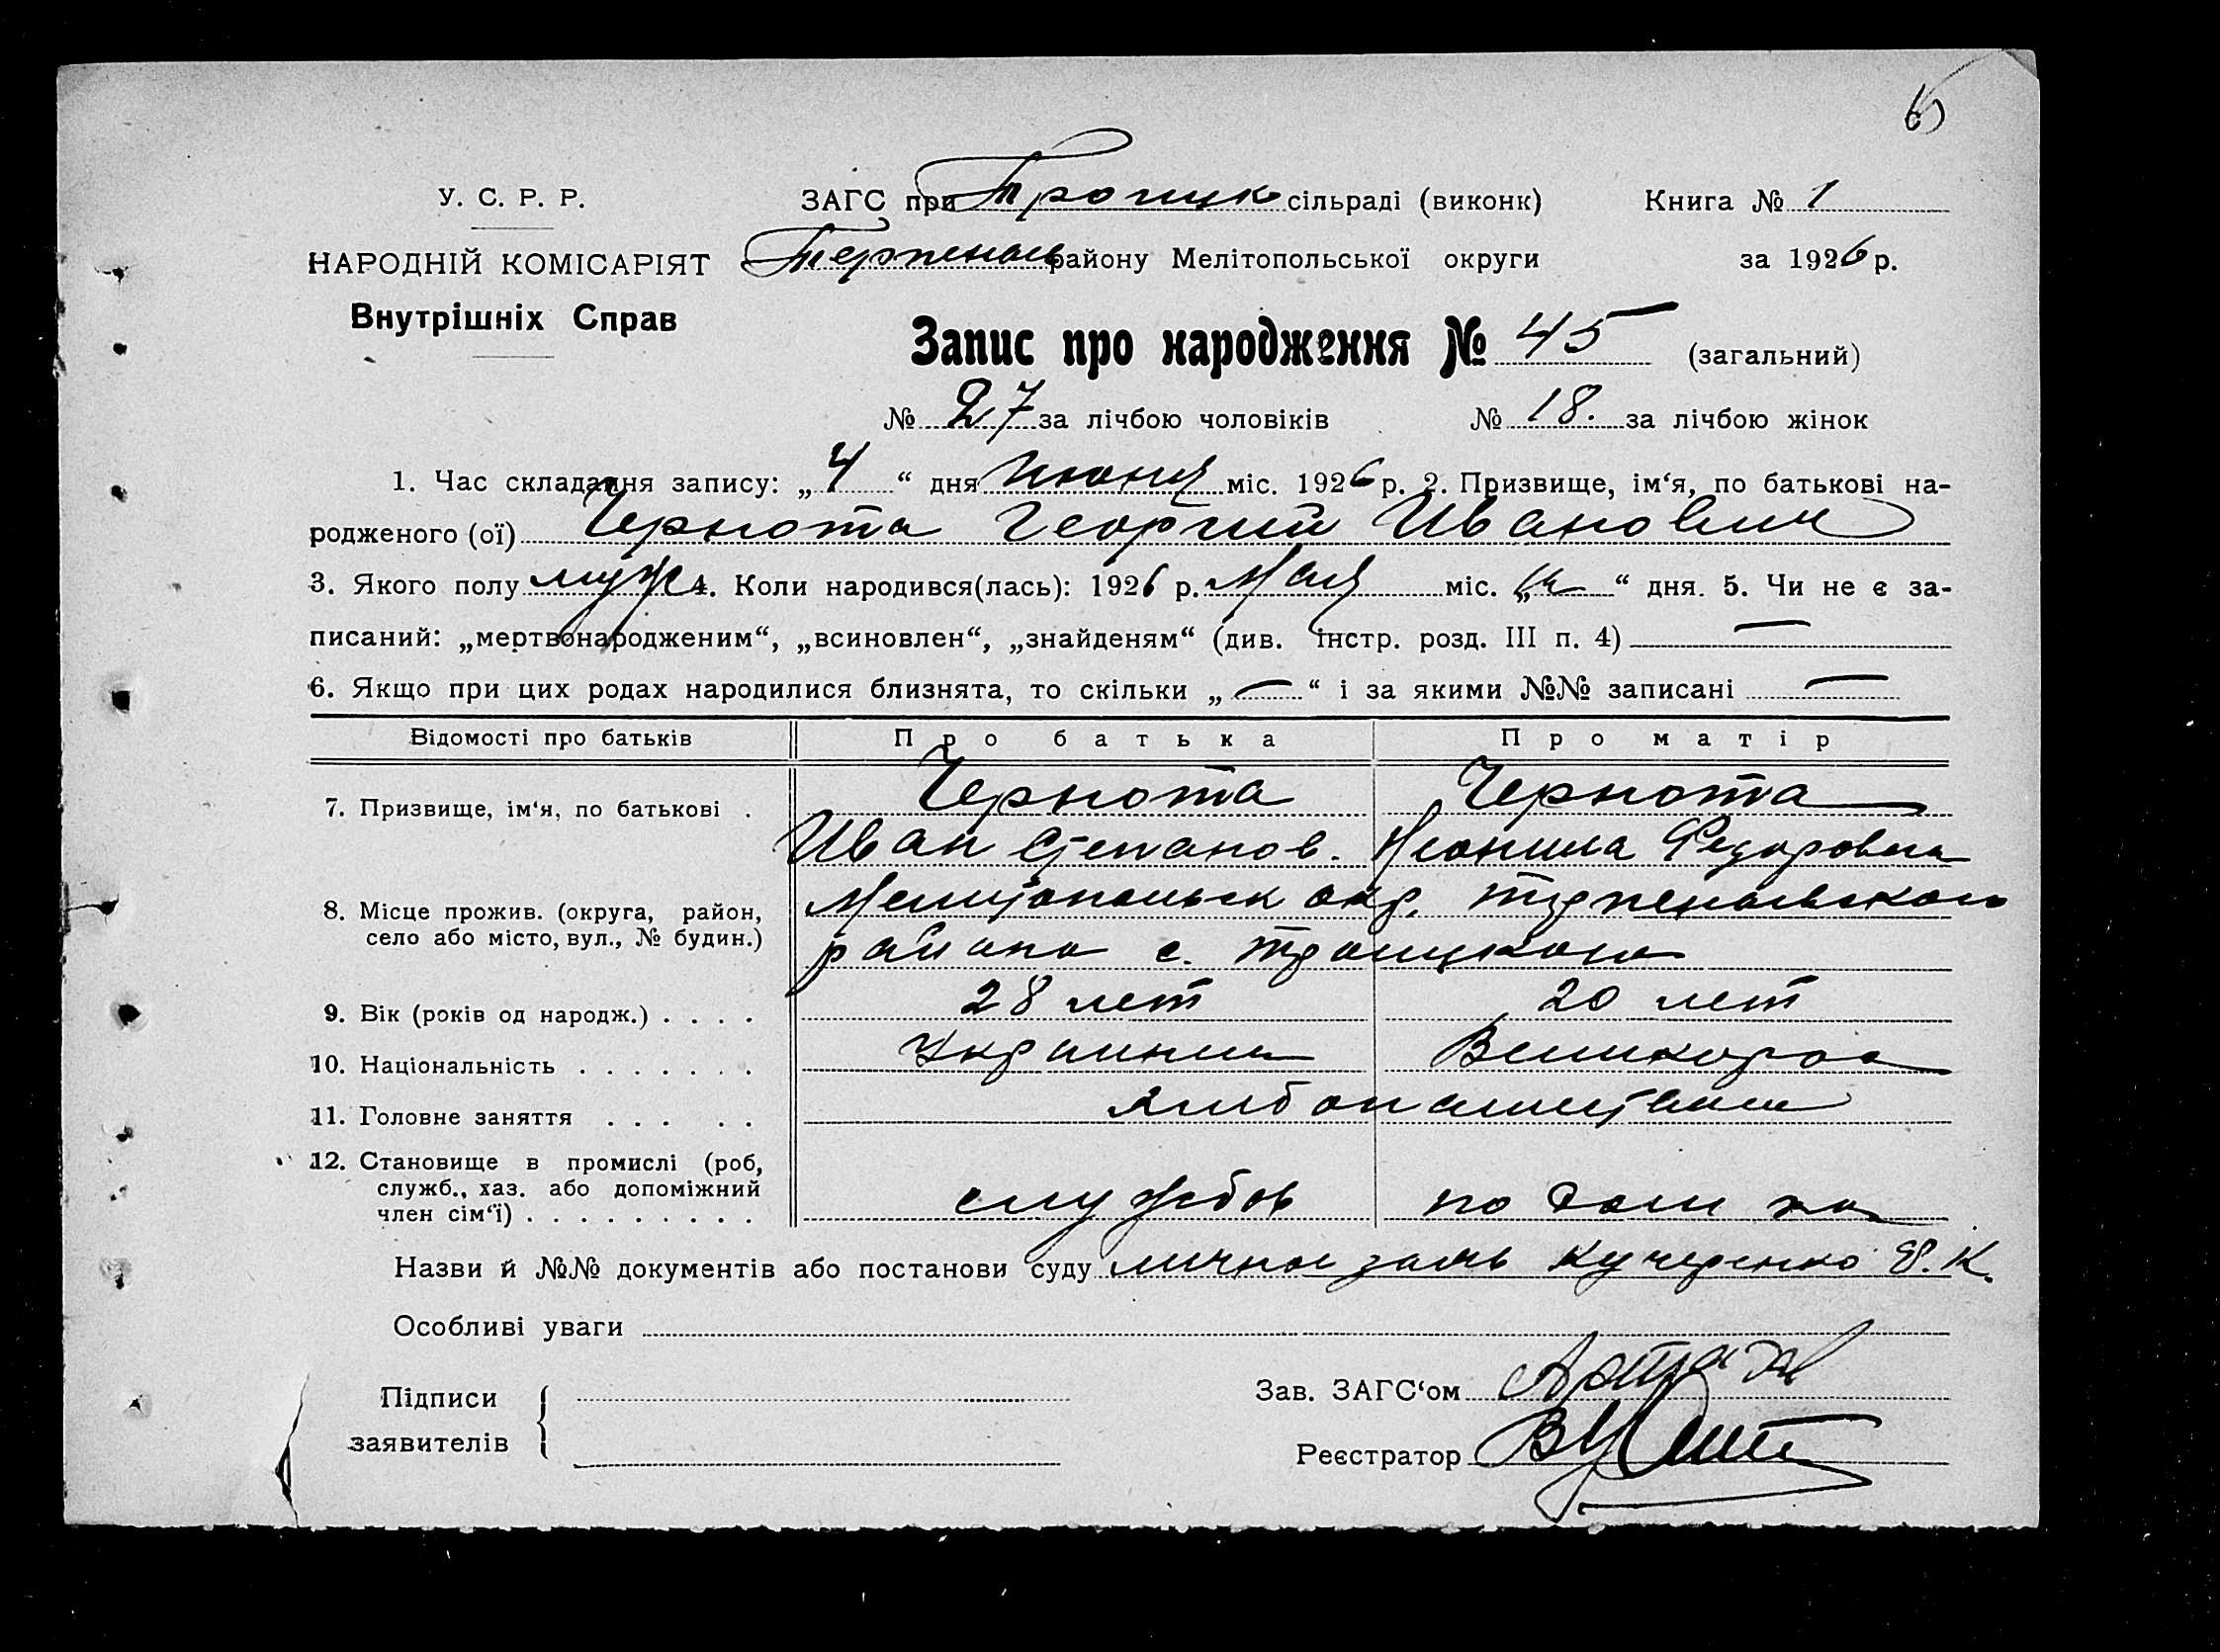 У. С. Р. Р.
НАРОДНІЙ КОМІСАРІЯТ
Внутрішніх Справ
ЗАГС при Троицк сільраді (виконк) Книга № 1
району Мелітопольської округи за 1926 р.
Запис про народження № 45 (загальний)
№ 27 за лічбою чоловіків № 18. за лічбою жінок
1. Час складання запису: „4“ дня июня міс. 1926 р. 2. Призвище, ім‘я, по батькові на-
родженого (ої) Чернота Георгий Иванович
3. Якого полу муж 4. Коли народився(лась): 1926 р. Мая міс. „ “ дня. 5. Чи не є за-
писаний: „мертвонародженим“, „всиновлен“, „знайденям“ (див. інстр. розд. III п. 4) —
6. Якщо при цих родах народилися близнята, то скільки „—“ і за якими №№ записані —
Відомості про батьків Про батька Про матір
7. Призвище, ім‘я, по батькові . Чернота Чернота
Иван Степанов. Неонила Федоровна
8. Місце прожив. (округа, район, село або місто, вул., № будин.) Мелитопольск окр.
района с. Троицкого
9. Вік (років од народж.) . . . . 28 лет 20 лет
10. Національність . . . . . . . Украинец Великорос
11. Головне заняття . . . . . Хлебопашество
12. Становище в промислі (роб,
служб., хаз. або допоміжний
член сім‘ї) . . . . . . . . .
Назви й №№ документів або постанови суду личное Кучеренко К.
Особливі уваги
Підписи
заявителів
Зав. ЗАГС‘ом
Реєстратор